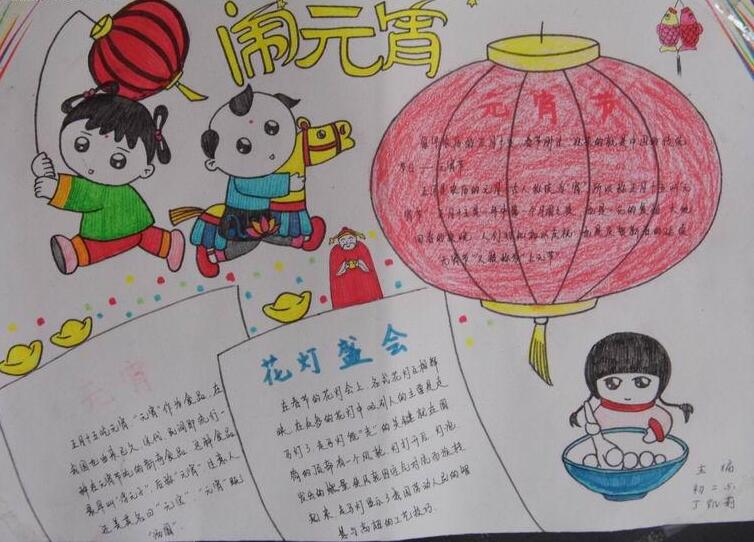 闹元宵
元宵节
每年农历的正月十五,春节刚过,迎来的就是中国的传统
节日——元宵节
正月是农历的元月,古人称夜为"宵",所以称正月十五叫元
宵节。正月十五是一年中第一个月圆之夜,也是一元复始,大地
回春的夜晚,人们对此加以庆祝,也是庆贺新春的延续
元宵节又称为"上元节
元宵
正月十五吃元宵,"元宵"作为食品,在
我国也由来已久,宋代,民间即流行一
种在元宵节吃的新奇食品,这种食品
最早叫"浮元子",后称"元宵",生意人
还美其名曰"元宝"。"元宵"即
"汤圆"
花灯盛会
在春节的花灯会上,各式花灯互相辉
映,在众多的花灯中吸引人的主要是走
马灯了,走马灯能"走"的关键就在圆
筒的顶部有一个风轮,灯打开后,灯泡
发出的
起来,走马灯显示了我国劳动人民的智
慧与高超的工艺技巧.
主编
初二.5
丁凯莉